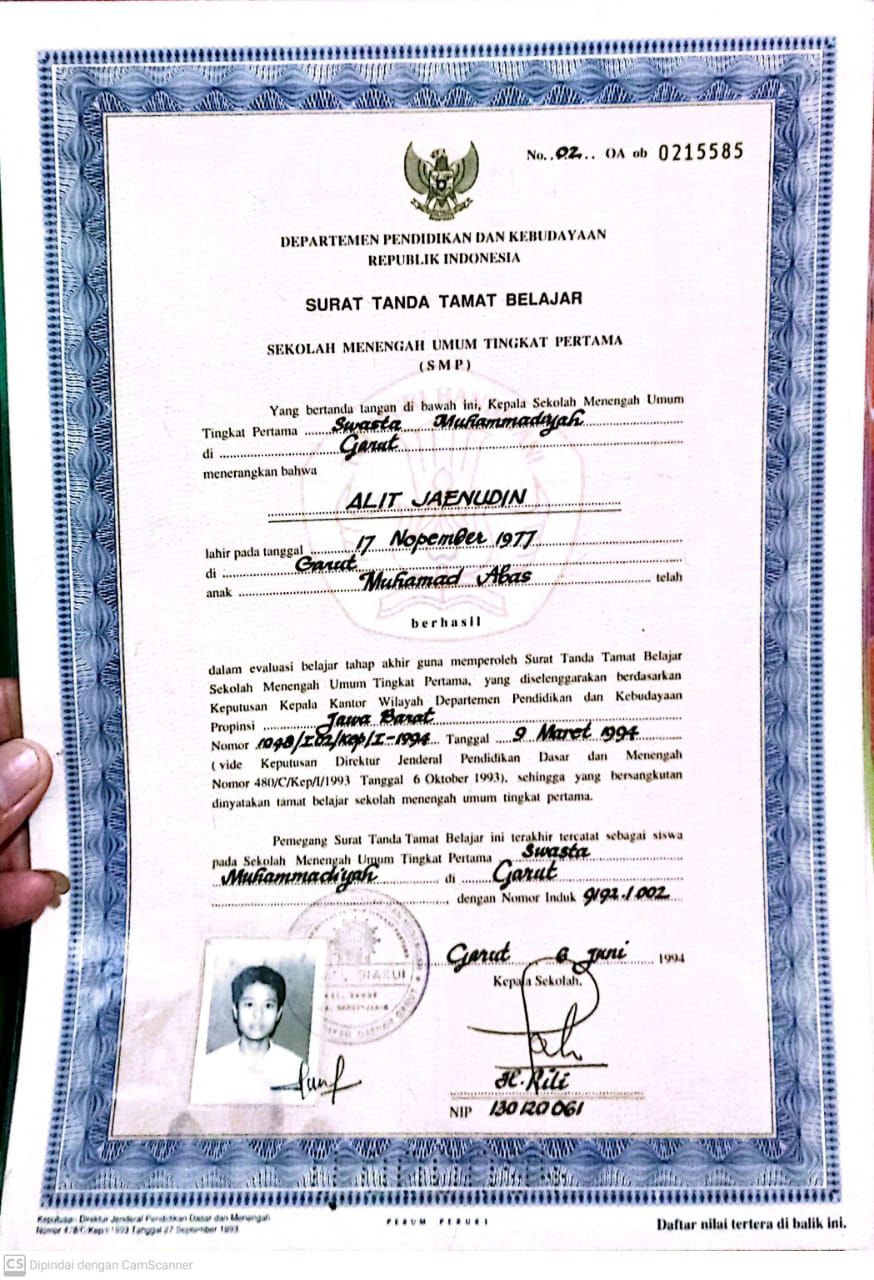 No. .02.. OA ob 0215585
DEPARTEMEN PENDIDIKAN DAN KEBUDAYAAN
REPUBLIK INDONESIA
SURAT TANDA TAMAT BELAJAR
SEKOLAH MENENGAH UMUM TINGKAT PERTAMA
( S M P )
Yang bertanda tangan di bawah ini, Kepala Sekolah Menengah Umum
Tingkat Pertama Swasta Muhammadiyah
di Garut
menerangkan bahwa
ALIT JAENUDIN
lahir pada tanggal 17 Nopember 1977
di Garut
anak Muhamad Abas telah
berhasil
dalam evaluasi belajar tahap akhir guna memperoleh Surat Tanda Tamat Belajar
Sekolah Menengah Umum Tingkat Pertama, yang diselenggarakan berdasarkan
Keputusan Kepala Kantor Wilayah Departemen Pendidikan dan Kebudayaan
Propinsi Jawa Barat
Nomor 1048/I.02/Kep/I-1994 Tanggal 9 Maret 1994
( vide Keputusan Direktur Jenderal Pendidikan Dasar dan Menengah
Nomor 480/C/Kep/I/1993 Tanggal 6 Oktober 1993), sehingga yang bersangkutan
dinyatakan tamat belajar sekolah menengah umum tingkat pertama.
Pemegang Surat Tanda Tamat Belajar ini terakhir tercatat sebagai siswa
pada Sekolah Menengah Umum Tingkat Pertama Swasta
Muhammadiyah di Garut
dengan Nomor Induk 9192.1.002
DIAKUI
Garut 6 Juni 1994
Kepala Sekolah,
H. Rili
NIP 130120061
Keputusan Direktur Jenderal Pendidikan Dasar dan Menengah
Nomor 478/C/Kep/I/1993 Tanggal 27 September 1993
PERUM PERURI
Daftar nilai tertera di balik ini.
CS Dipindai dengan CamScanner